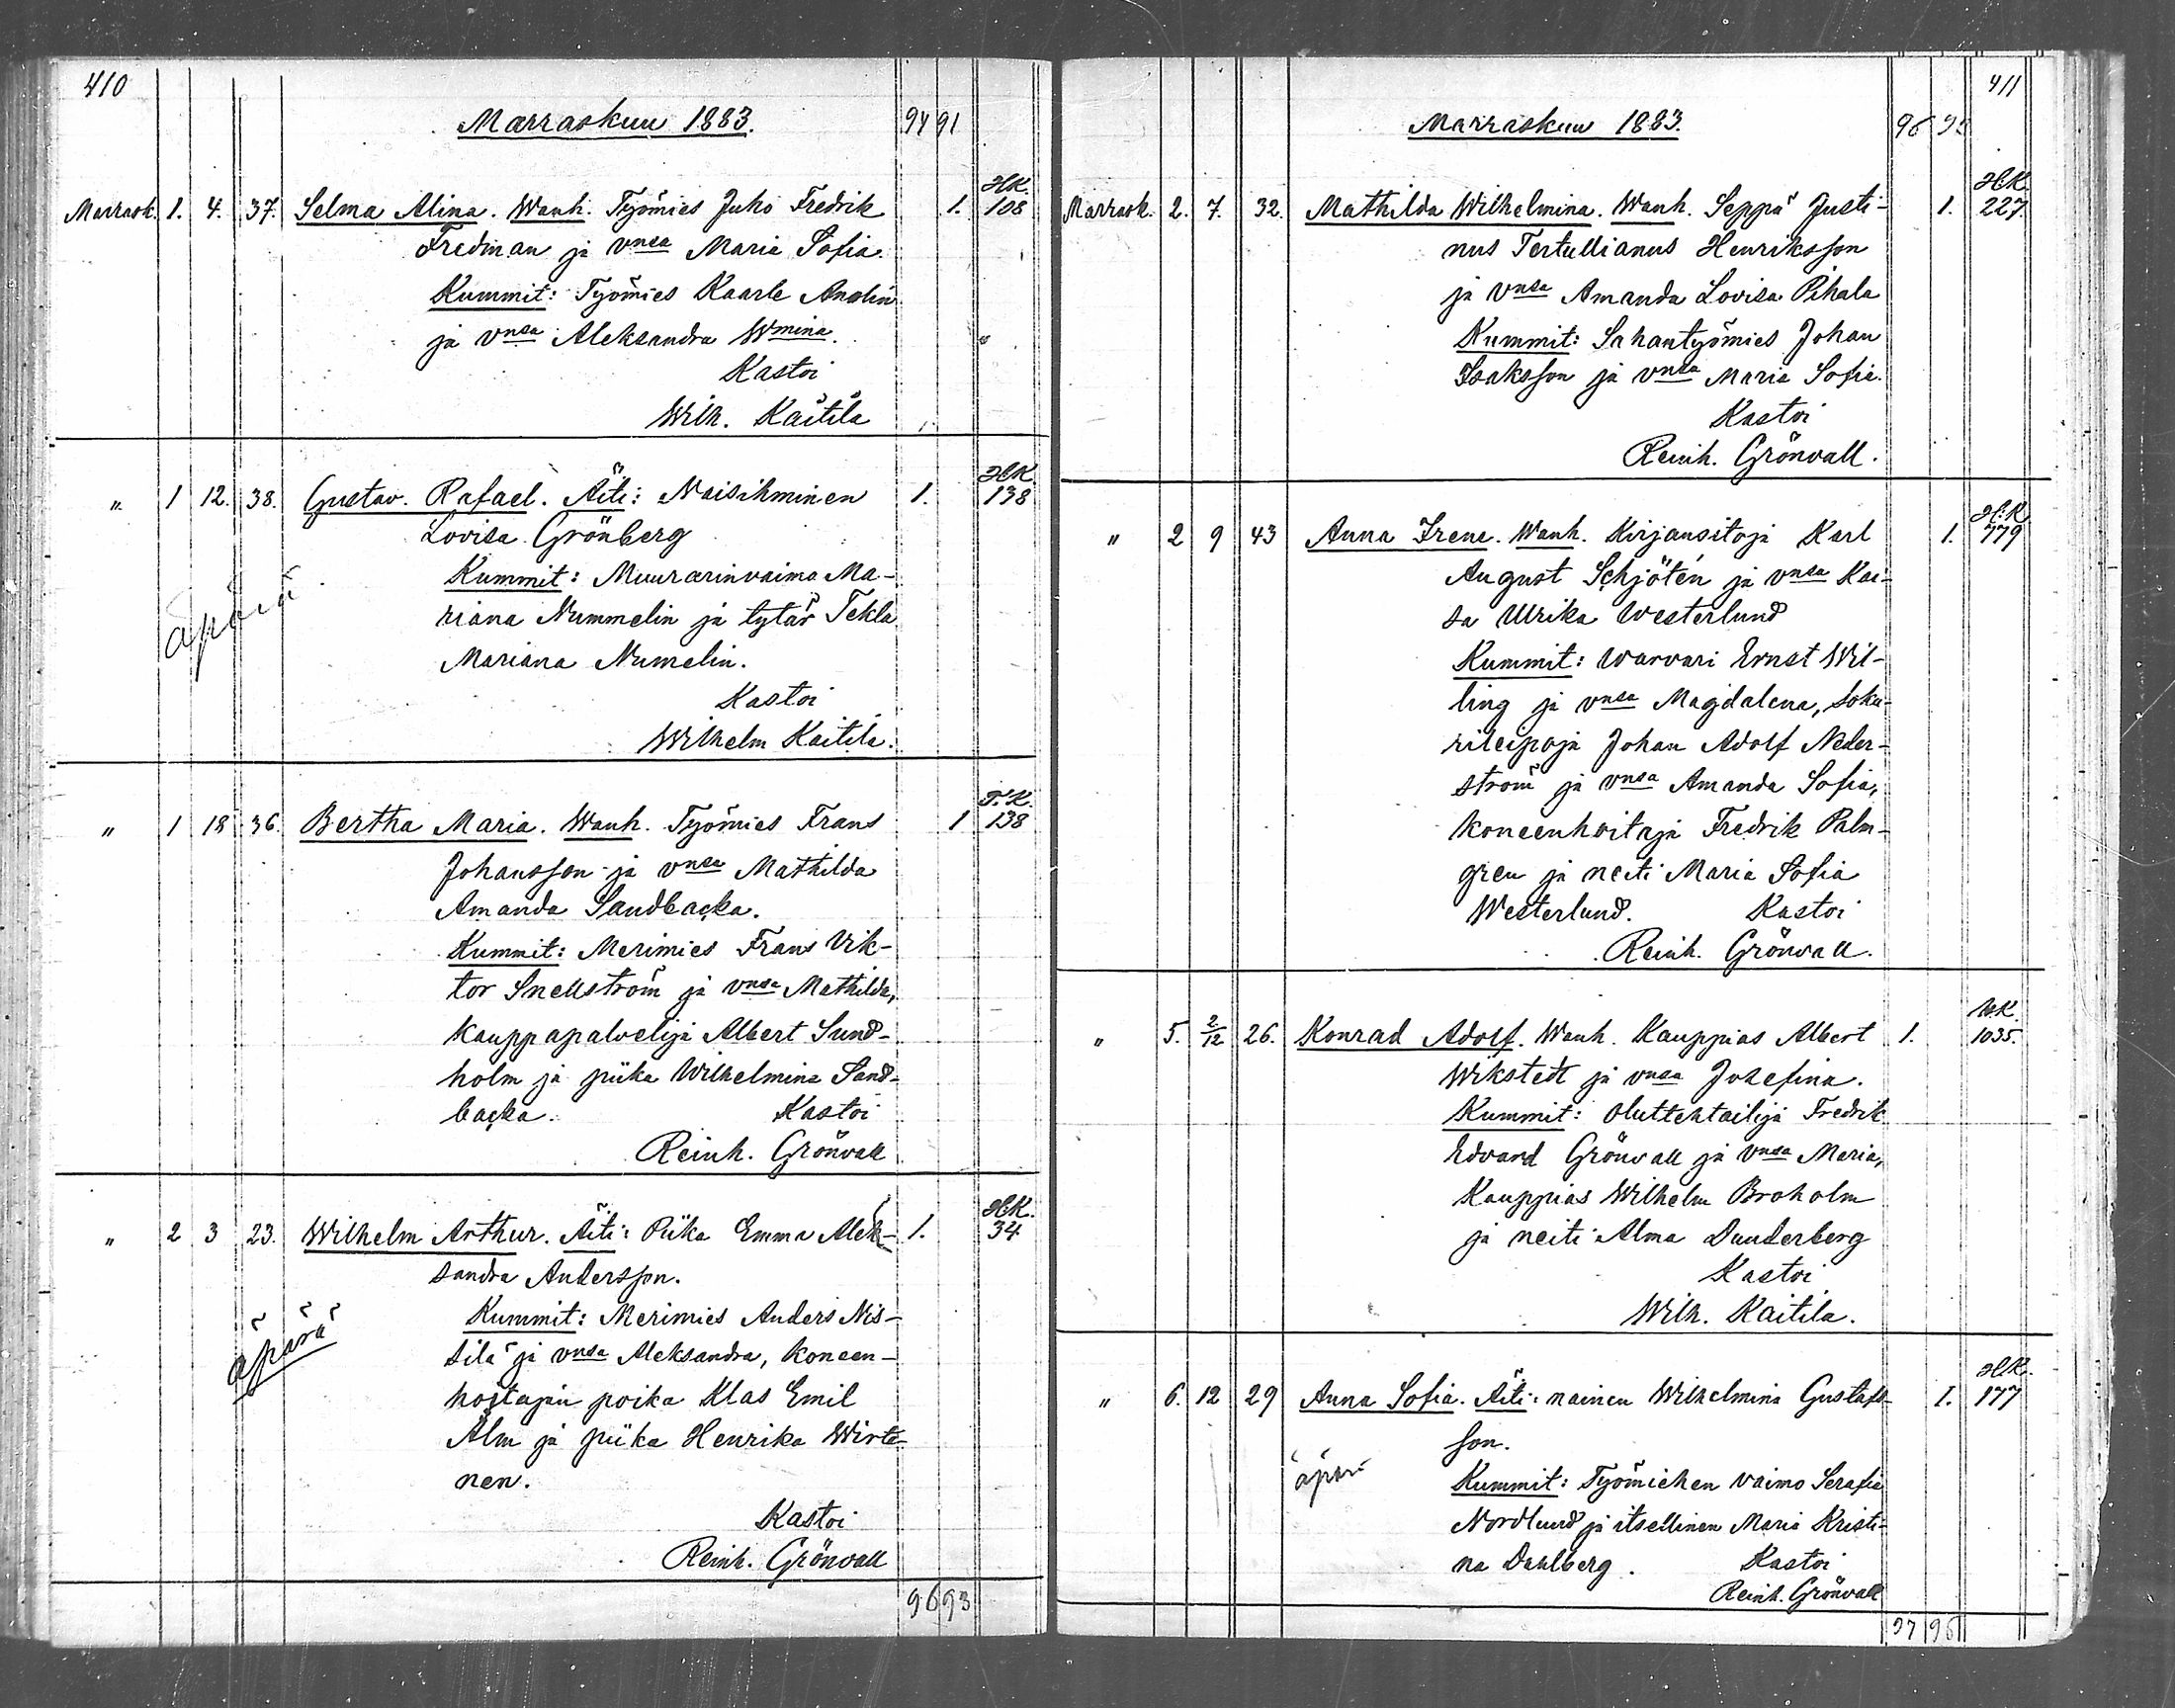 410
Marraskuu 1883. 94 91
H.K.
Marrask. 1. 4. 37. Selma Alina. Wanh. Työmies Juho Fredrik 1. 108
Fredman ja vnsa Maria Sofia.
Kummit: Työmies Kaarle Andlin
ja vnsa Aleksandra Wmina.
Kastoi
Wilh. Kaitila
H.K.
" 1 12. 38. Gustav. Rafael. Äiti: Naisihminen 1. 138
Lovisa Grönberg
Kummit: Muurarinvaimo Ma-
äpärä
riana Nummelin ja tytär Tekla
Mariana Numelin.
Kastoi
Wilhelm Kaitila.
T.K.
" 1 18 36. Bertha Maria. Wanh. Työmies Frans 1 138
Johansson ja vnsa Mathilda
Amanda Sandbacka.
Kummit: Merimies Frans Vik-
tor Snellström ja vnsa Mathilda,
kauppapalvelija Albert Sund-
holm ja piika Wilhelmina Sand-
backa. Kastoi
Reinh. Grönvall
H.K.
" 2 3 23. Wilhelm Arthur. Äiti: Piika Emma Alek- 1. 34
sandra Andersson.
Kummit: Merimies Anders Nis-
äpärä
silä ja vnsa Aleksandra, koneen-
hoitajan poika Klas Emil
Alm ja piika Henrika Wirta-
nen.
Kastoi
Reinh. Grönvall
96 93
411
Marraskuu 1883. 96 93
H.K.
Marrask. 2. 7. 32. Mathilda Wilhelmina. Wanh. Seppä Justi- 1. 227.
nus Tertullianus Henriksson
ja vnsa Amanda Lovisa Pihala
Kummit: Sahantyömies Johan
Isaksson ja vnsa Maria Sofia.
Kastoi
Reinh. Grönvall.
H.K.
" 2 9 43 Anna Irene. Wanh. Kirjansitoja Karl 1. 779
August Schjötén ja vnsa Kai-
sa Ulrika Westerlund
Kummit: Warvari Ernst Wil-
ling ja vnsa Magdalena, soku-
rileipoja Johan Adolf Neder-
ström ja vnsa Amanda Sofia,
koneenhoitaja Fredrik Palm-
gren ja neiti Maria Sofia
Westerlund. Kastoi
Reinh. Grönvall.
U.K.
" 5. 2/12 26. Konrad Adolf. Wanh. Kauppias Albert 1. 1035.
Wikstedt ja vnsa Josefina.
Kummit: Oluttehtailija Fredrik
Edvard Grönvall ja vnsa Maria,
Kauppias Wilhelm Broholm
ja neiti Alma Dunderberg
Kastoi
Wilh. Kaitila.
H.K.
" 6. 12 29 Anna Sofia. Äiti: nainen Wilhelmina Gustafs- 1. 177
son.
äpär
Kummit: Työmiehen vaimo Serafia
Nordlund ja itsellinen Maria Kristi-
na Dahlberg. Kastoi
Reinh. Grönvall
97 96